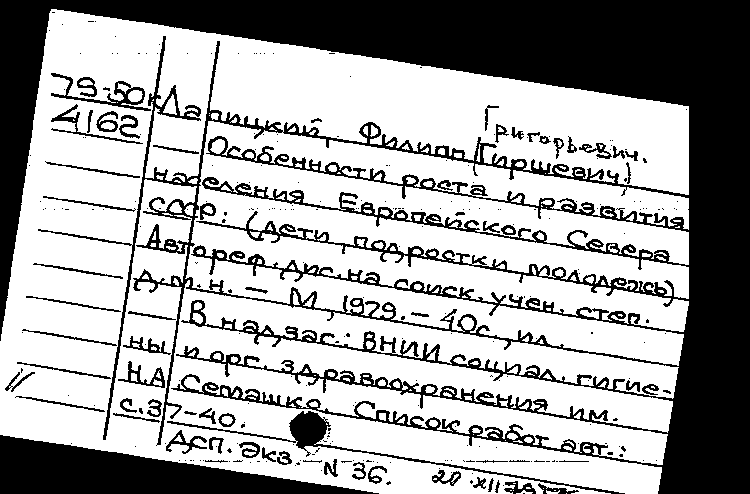 79-50к
4162
Григорьевич.
Лапицкий, Филипп (Гиршевич.)
Особенности роста и развития
населения Европейского Севера
СССР: (дети, подростки, молодежь)
Автореф. дис. на соиск. учен. степ.
д.м.н. — М, 1979. — 40с., ил.
В надзаг.: ВНИИ социал. гигие-
ны и орг. здравоохранения им.
Н.А. Семашко. Список работ авт.:
с.37-40.
Дсп. Экз. N 36.
20 XII